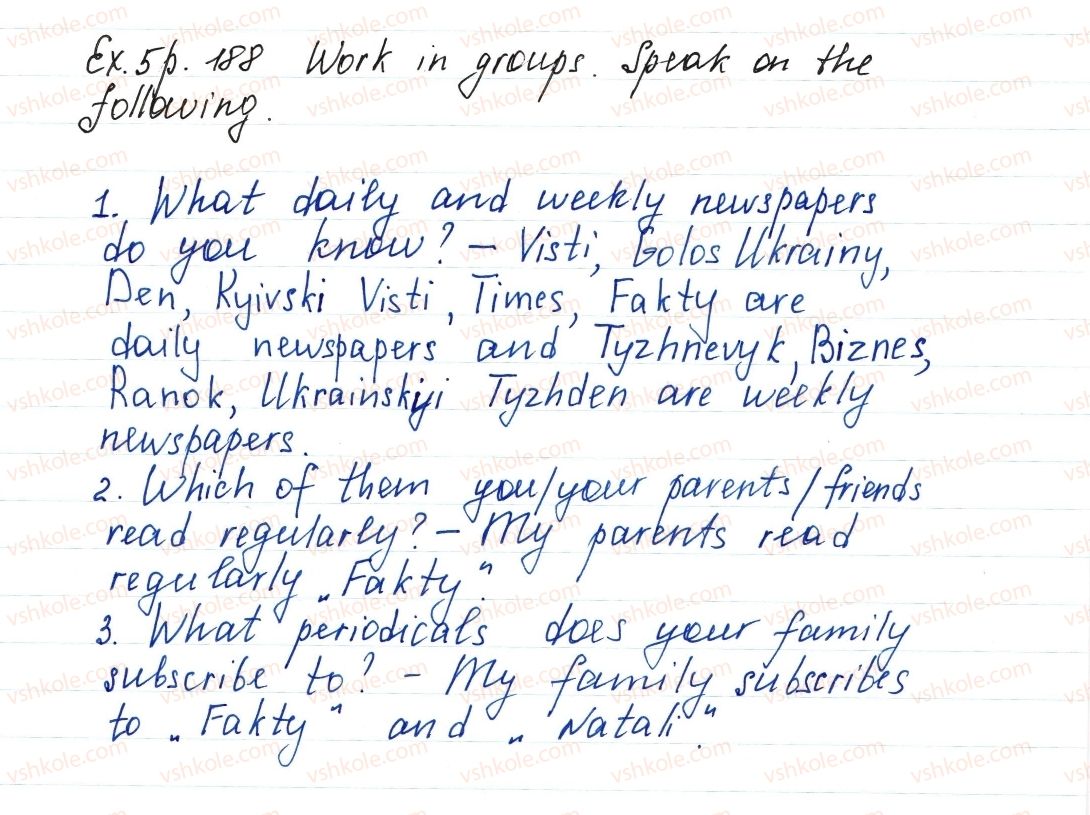 Ex. 5 p. 188 Work in groups. Speak on the
following.
1. What daily and weekly newspapers
do you know? – Visti, Golos Ukrainy,
Den, Kyivski Visti, Times, Fakty are
daily newspapers and Tyzhnevyk, Biznes,
Ranok, Ukrainskiyi Tyzhden are weekly
newspapers.
2. Which of them you/your parents/friends
read regularly? – My parents read
regularly „Fakty".
3. What periodicals does your family
subscribe to? – My family subscribes
to „Fakty" and „Natali".